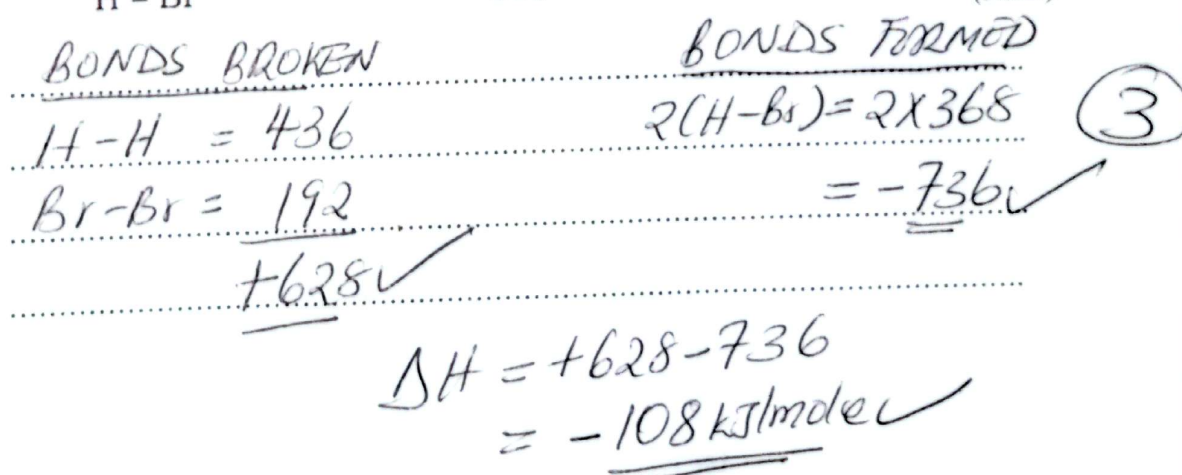 H – Br
BONDS BROKEN
H-H = 436
Br-Br = 192
+628✓
BONDS FORMED
2(H-Br) = 2X368
= -736✓
3
ΔH = +628-736
= -108 kJ/mole✓